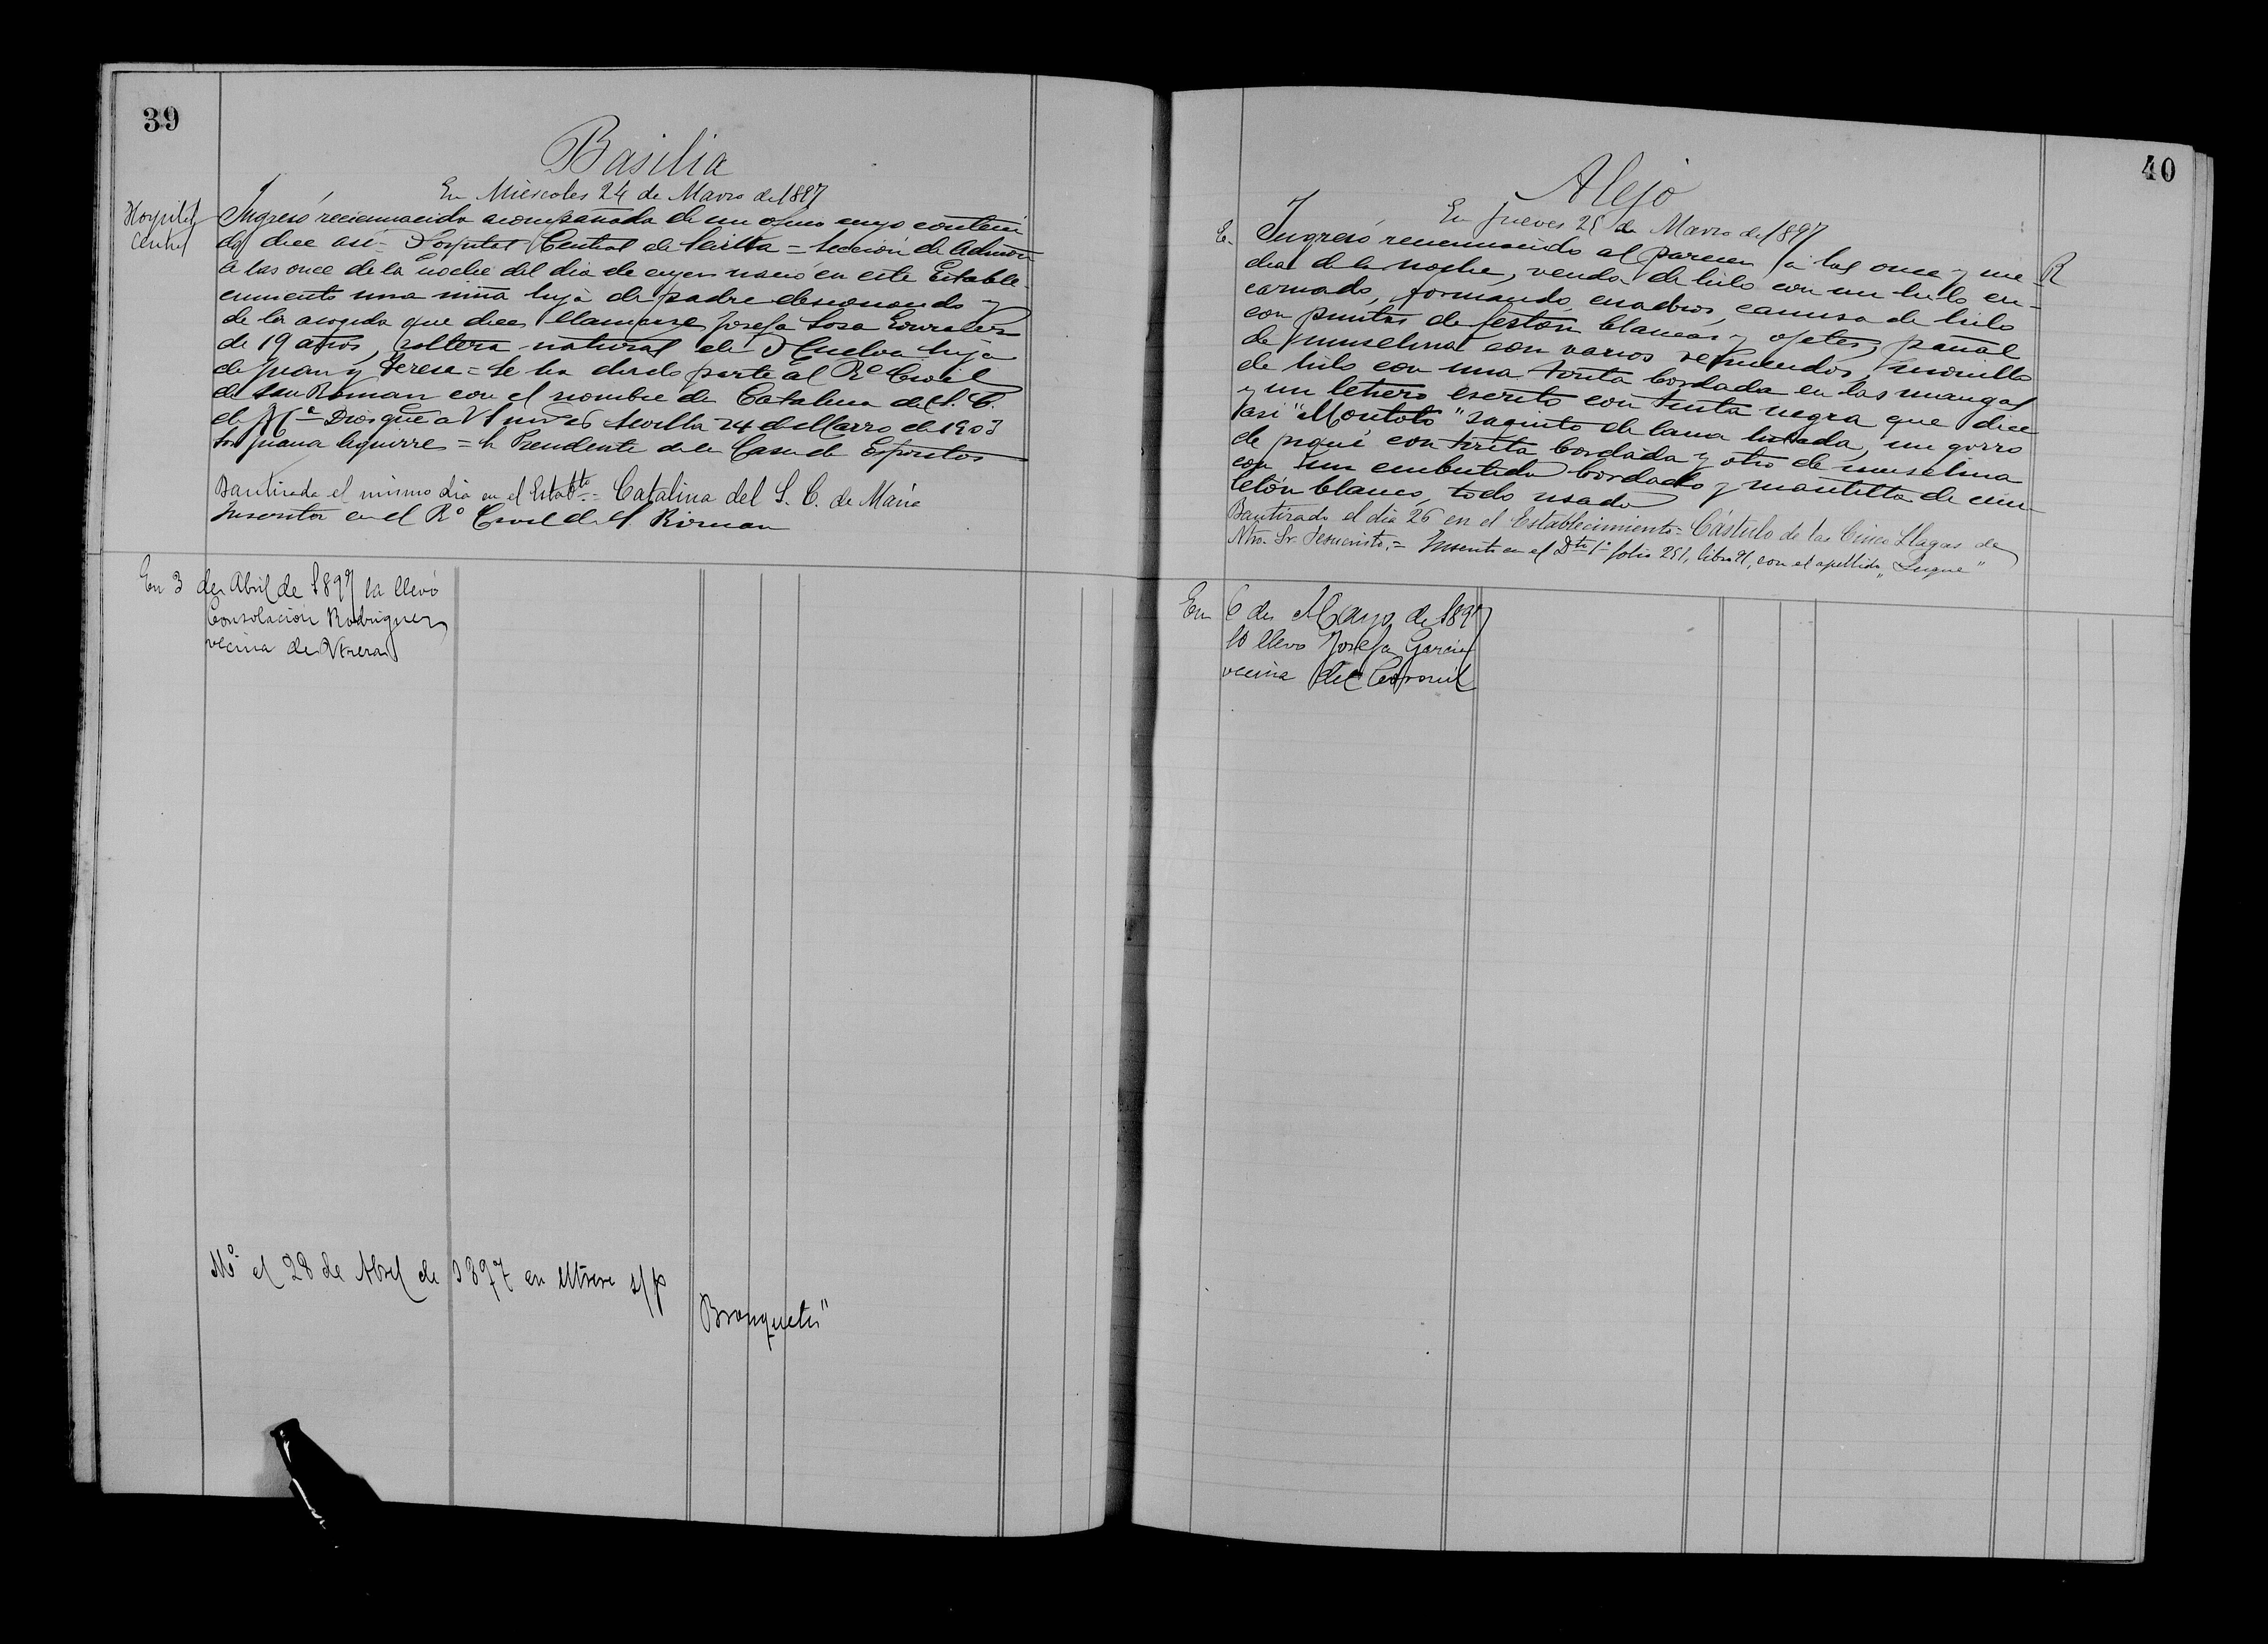 39
Basilia
En Miércoles 24 de Marzo de 1897
Hospital
Central
Ingresó reciennacida acompañada de un oficio cuyo conteni
do dice así = Hospital Central de Sevilla = Sección de Admon
A las once de la noche del dia de ayer nació en este Estable-
cimiento una niña hija de padre desconocido y
de la acogida que dice llamarse Josefa Sosa
de 19 años, soltera natural de Huelva hija
de Juan y Teresa = Se ha dado parte al Rº Civil
de San Roman con el nombre de Catalina del S. C.
de Mª Dios gue a V Sevilla 24 de Marzo de 1903
Sor Juana Aguirre = Sr Presidente de la Casa de Expositos
Bautizada el mismo dia en el Estabto = Catalina del S. C. de María
Inscrita en el Rº Civil de S. Roman
En 3 de Abril de 1897 la llevó
Consolación Rodriguez
vecina de Utrera
Mº el 28 de Abril de 1897 en Utrera s/p
40
Alejo
En Jueves 25 de Marzo de 1897
E.
R
Ingresó reciennacido al parecer a las once y me
dia de la noche, venda de hilo con un hilo en-
carnado, formando cuadros, camisa de hilo
con puntas de festón blancas y ojetes, pañal
de muselina con varios remiendos,
de hilo con una tirita bordada en las mangas
y un letrero escrito con tinta negra que dice
asi "Montoto" saquito de lana listada, un gorro
de piqué con tirita bordada y otro de muselina
con un embutido bordado y mantilla de mu-
letón blanco, todo usado
Bautizado el dia 26 en el Establecimiento = Cástulo de las Cinco Llagas de
Ntro. Sr. Jesucristo. = Inscrito en el Dto 1º folio 251, libro 91, con el apellido "Luque"
En 6 de Mayo de 1897
lo llevo Josefa Garcia
vecina del Coronil